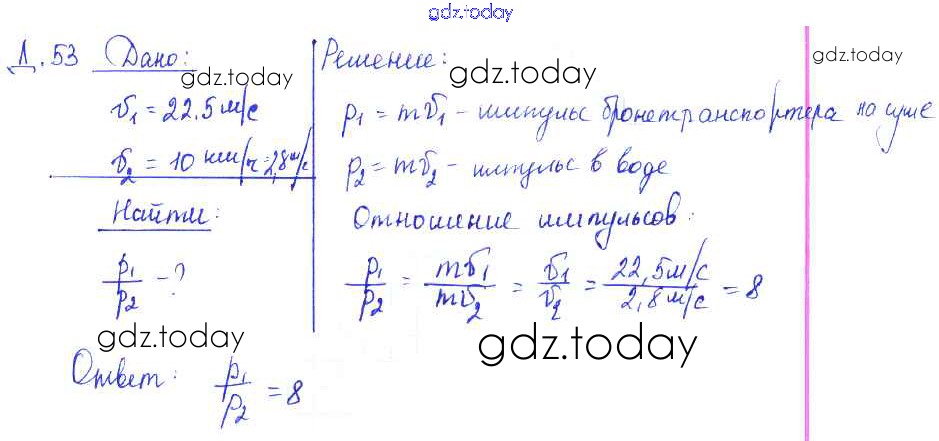 gdz.today
Д. 53 Дано:
gdz.today
υ₁ = 22,5 м/с
υ₂ = 10 км/ч = 2,8 м/с
Найти:
p₁/p₂ - ?
gdz.today
Решение:
gdz.today
gdz.today
p₁ = mυ₁ - импульс бронетранспортера на суше
p₂ = mυ₂ - импульс в воде
Отношение импульсов:
p₁/p₂ = mυ₁/mυ₂ = υ₁/υ₂ = 22,5 м/с / 2,8 м/с = 8
gdz.today
Ответ: p₁/p₂ = 8